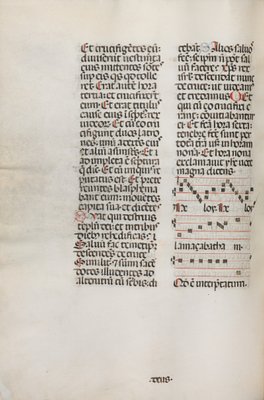 Et crucifigētes eū
diuiserūt uestimta
eius mittentes sorte
sup eis qis qd tolle
ret. Erat aute hora
tertia: et crucifixert
eum. Et erat titulus
cause eius iscpt rex
iudeor. Et cū eo
duos latro
nes: unū a dextris
aliū a sinistris. Et
ipleta ē scptura
q dic. Et cū iniquis re
putatus est. Et
reuntes blasphema
bant eum: mouetes
capita sua et dicetes.
Vah qui destruis
teplū dei: et in tribus
dieb reedificas:
Saluū fac temetipm
descendes de cruce
Similit & sumi sacer
dotes illudentes ad
alterutrū cū scribis di
cebāt. Alios saluos
fec: seipm nō pot sal
uū facere. Xps rex
isrl descendat nunc
de cruce: ut uideamus
et credamus. Et
qui cū eo crucifixi e
rant: cōuitiabantur
ei. Et fca hora sexta:
tenebre fce sunt per
totā trā usq in horam
nona. Et hora nona
exclamauit ihs uoce
magna dicens.
loy. loy.
lamazabatha ni.
Qd ē interpretatum.